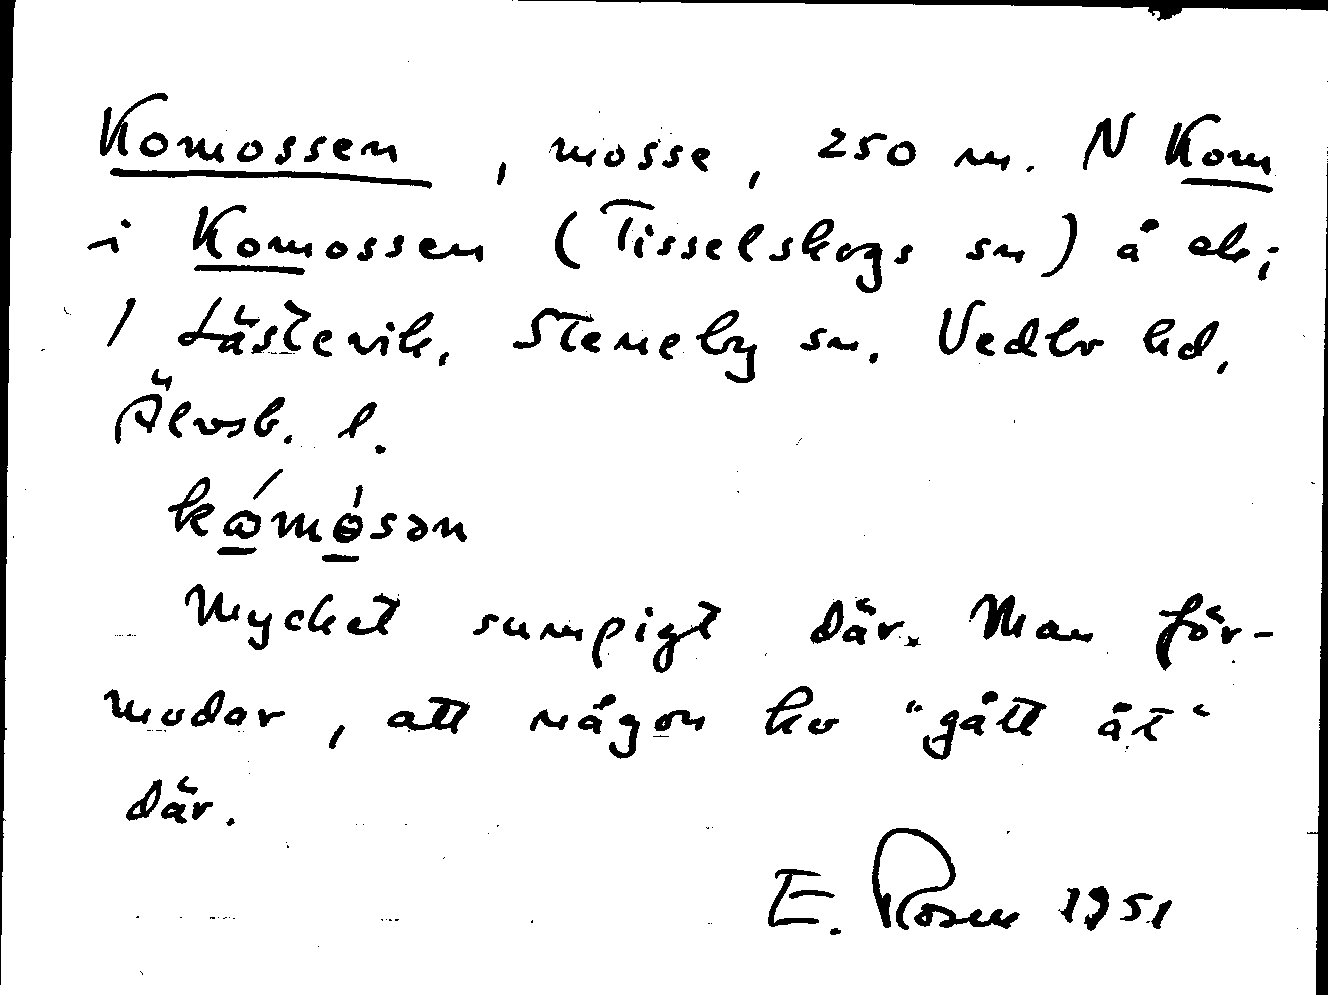 Komossen, mosse, 250 m. N Kom
i Komossen (Tisselskogs sn) å ek;
1 Låstevik, Steneby sn. Vedbo hd,
Älvsb. l.
Mycket sumpigt där. Man för-
modar, att någon ko "gått åt"
där.
E. Rosen 1951